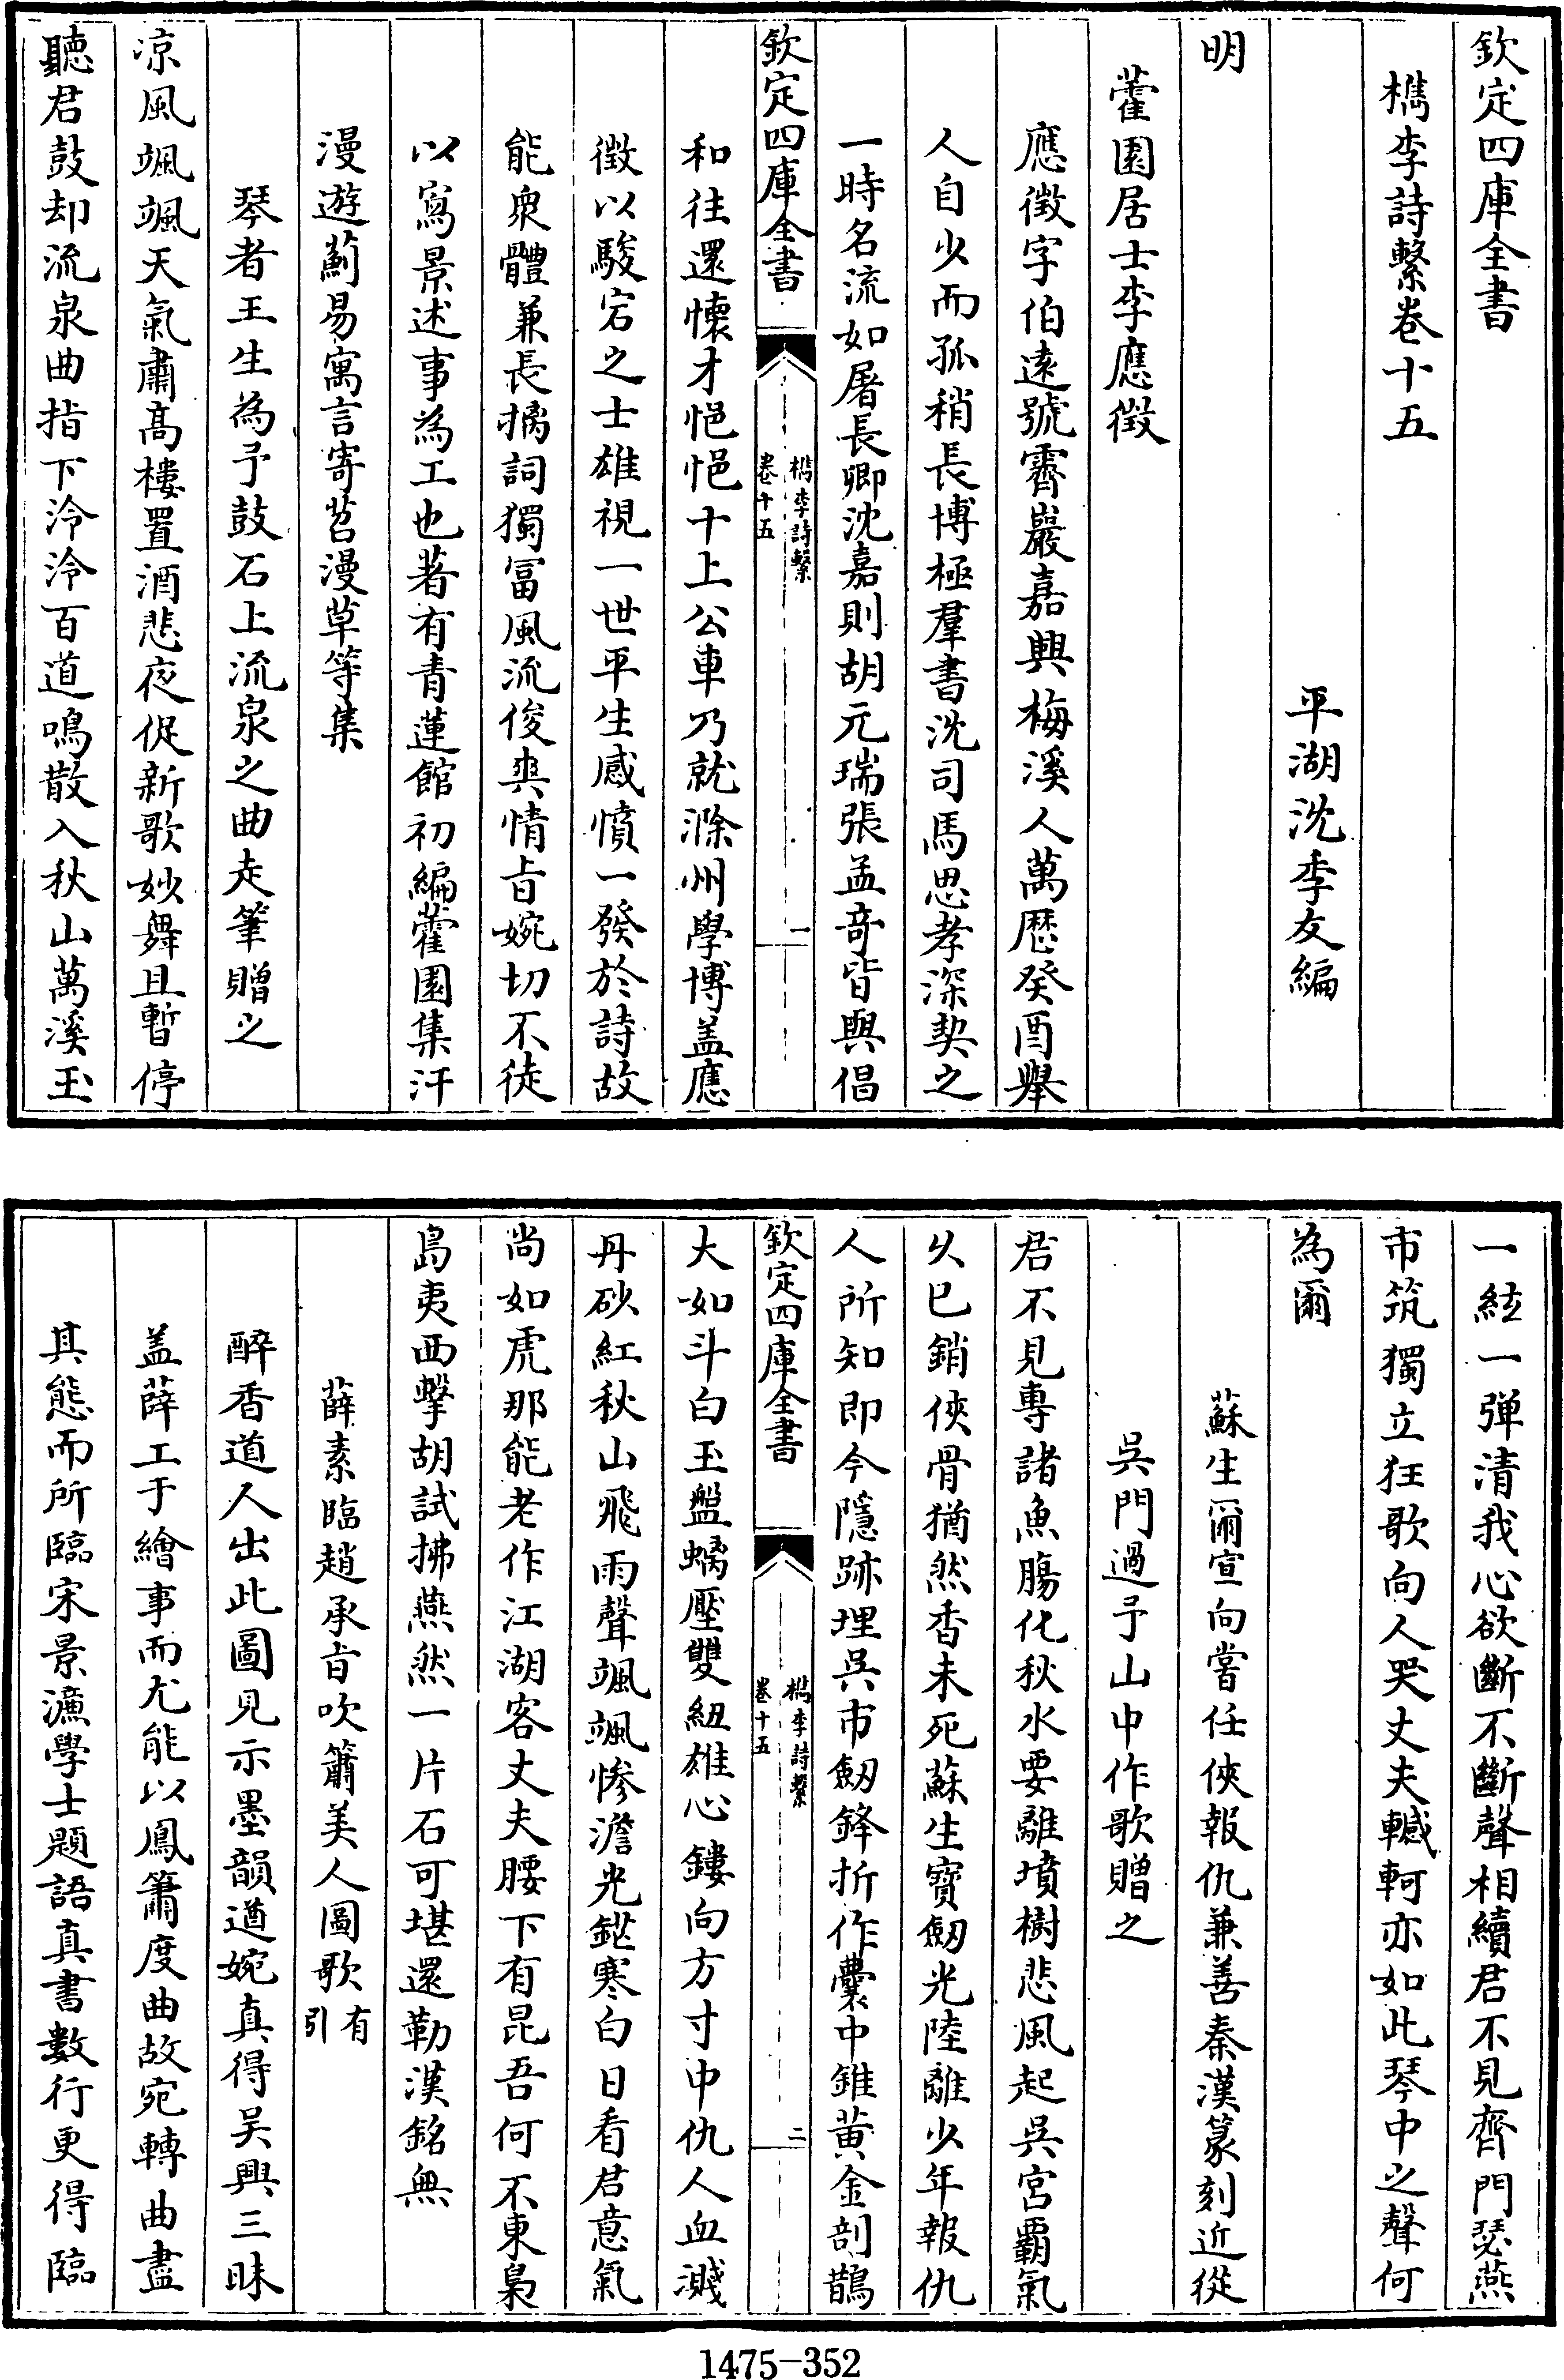 欽定四庫全書
檇李詩繫卷十五
平湖沈季友編
明
藿園居士李應徵
應徵字伯遠號霽巖嘉興梅溪人萬歷癸酉舉
人自少而孤稍長博極羣書沈司馬思孝深契之
一時名流如屠長卿沈嘉則胡元瑞張孟奇皆與倡
欽定四庫全書
檇李詩繫
卷十五
一
和往還懷才悒悒十上公車乃就滁州學博盖應
徵以駿宕之士雄視一世平生感憤一發於詩故
能衆體兼長摛詞獨富風流俊爽情旨婉切不徒
以寫景述事為工也著有青蓮館初編藿園集汗
漫遊薊易寓言寄苕漫草等集
琴者王生為予鼓石上流泉之曲走筆贈之
凉風颯颯天氣肅髙樓置酒悲夜促新歌妙舞且暫停
聽君鼓却流泉曲指下泠泠百道鳴散入秋山萬溪玉
一絃一弹清我心欲斷不斷聲相續君不見齊門瑟燕
市筑獨立狂歌向人哭丈夫轗軻亦如此琴中之聲何
為爾
蘇生爾宣向嘗任俠報仇兼善秦漢篆刻近從
吳門過予山中作歌贈之
君不見專諸魚腸化秋水要離墳樹悲風起吳宮覇氣
乆已銷俠骨猶然香未死蘇生寶劒光陸離少年報仇
人所知即今隱跡埋吳市劒鋒折作囊中錐黄金剖鵲
欽定四庫全書
檇李詩繫
卷十五
二
大如斗白玉盤螭壓雙紐雄心鏤向方寸中仇人血濺
丹砂紅秋山飛雨聲颯颯惨澹光鋩寒白日看君意氣
尚如虎那能老作江湖客丈夫腰下有昆吾何不東梟
島夷西擊胡試拂燕然一片石可堪還勒漢銘無
薛素臨趙承旨吹簫美人圖歌有引
醉香道人出此圖見示墨韻遒婉真得吳興三昧
盖薛工于繪事而尤能以鳳簫度曲故宛轉曲盡
其態而所臨宋景濂學士題語真書數行更得臨
1475-352